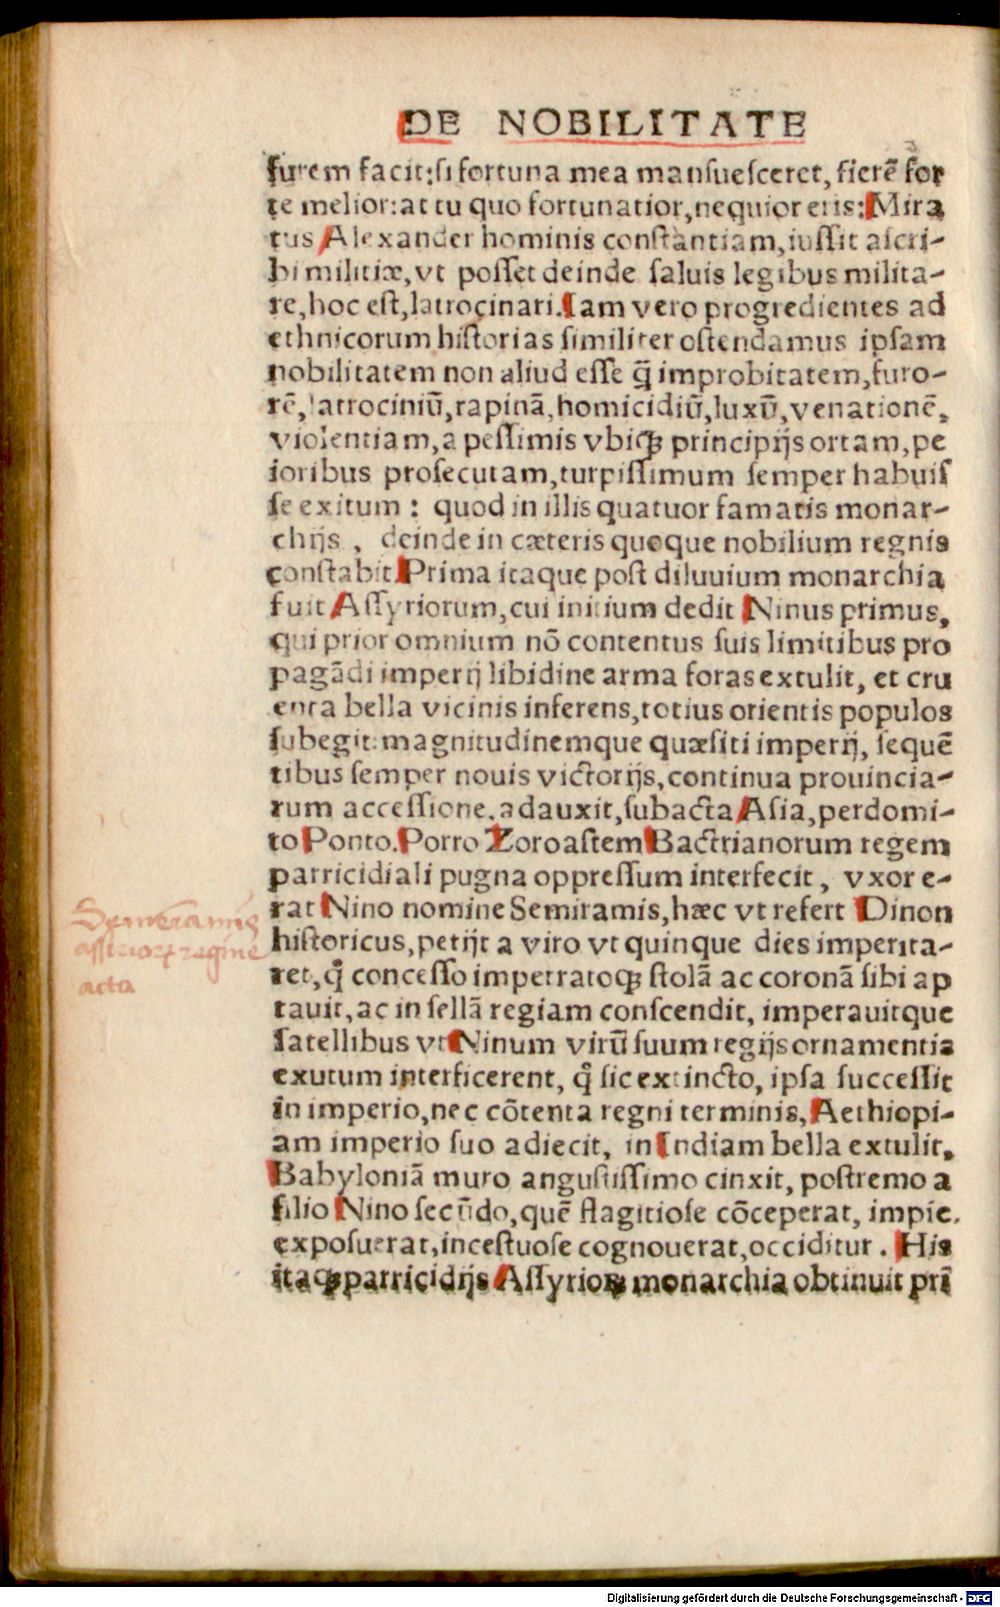 DE NOBILITATE
furem facit:si fortuna mea mansuesceret, fierē for
te melior:at tu quo fortunatior,nequior eris:Mira
tus Alexander hominis constantiam,iussit ascri-
bi militiæ,vt posset deinde saluis legibus milita-
re,hoc est,latrocinari.Iam vero progredientes ad
ethnicorum historias similiter ostendamus ipsam
nobilitatem non aliud esse q̄ improbitatem,furo-
rē,latrociniū,rapinā,homicidiū,luxū,venationē,
violentiam,a pessimis vbiqꝫ principijs ortam,pe
ioribus prosecutam,turpissimum semper habuis
se exitum : quod in illis quatuor famatis monar-
chijs , deinde in cæteris quoque nobilium regnis
constabit.Prima itaque post diluuium monarchia
fuit Assyriorum,cui initium dedit Ninus primus,
qui prior omnium nō contentus suis limitibus pro
pagādi imperij libidine arma foras extulit, et cru
enta bella vicinis inferens,totius orientis populos
subegit:magnitudinemque quæsiti imperij, sequē
tibus semper nouis victorijs,continua prouincia-
rum accessione,adauxit,subacta Asia,perdomi-
to Ponto.Porro Zoroastem Bactrianorum regem
parricidiali pugna oppressum interfecit, vxor e-
rat Nino nomine Semiramis,hæc vt refert Dinon
historicus,petijt a viro vt quinque dies imperita-
ret,q̊ concesso impetratoqꝫ stolā ac coronā sibi ap
tauit,ac in sellā regiam conscendit, imperauitque
satellibus vt Ninum virū suum regijs ornamentis
exutum interficerent, q̊ sic extincto, ipsa successit
in imperio,nec cōtenta regni terminis,Aethiopi-
am imperio suo adiecit, in Indiam bella extulit,
Babyloniā muro angustissimo cinxit, postremo a
filio Nino secūdo,quē flagitiose cōceperat, impie,
exposuerat,incestuose cognouerat,occiditur . His
itaqꝫ parricidijs Assyrioꝝ monarchia obtinuit pri̅
Semiramis
assirioꝝ regine
acta
Digitalisierung gefördert durch die Deutsche Forschungsgemeinschaft - DFG